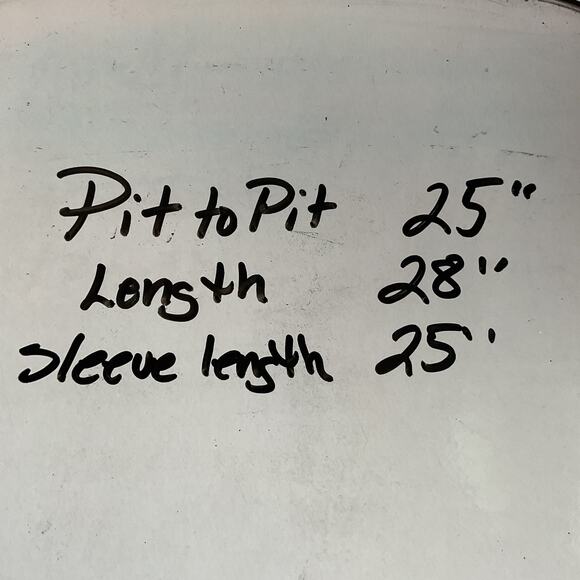 Pit to Pit 25"
Length 28"
Sleeve length 25"